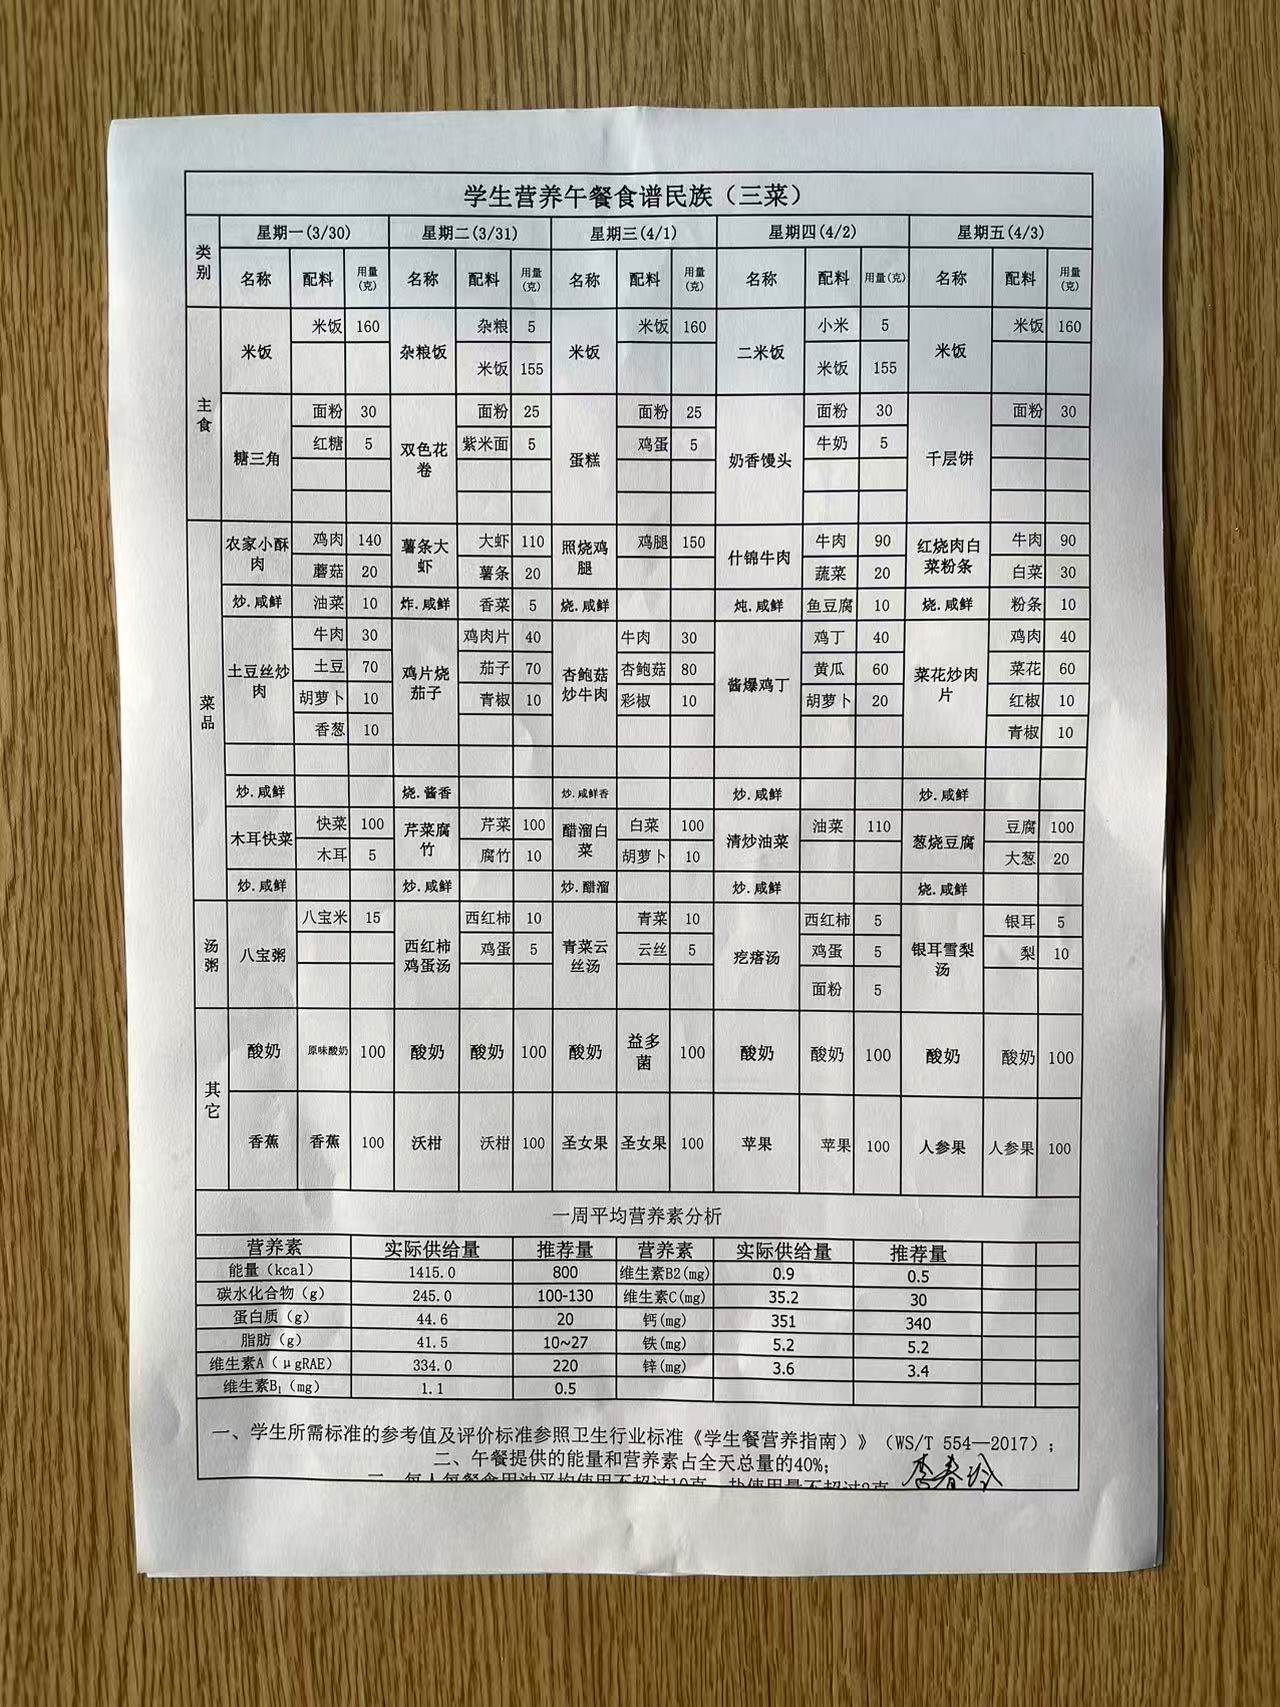 学生营养午餐食谱民族（三菜）
类别 星期一(3/30) 星期二(3/31) 星期三(4/1) 星期四(4/2) 星期五(4/3)
名称 配料 用量(克) 名称 配料 用量(克) 名称 配料 用量(克) 名称 配料 用量(克) 名称 配料 用量(克)
主食 米饭 米饭 160 杂粮饭 杂粮 5 米饭 米饭 160 二米饭 小米 5 米饭 米饭 160
米饭 155 米饭 155
糖三角 面粉 30 双色花卷 面粉 25 蛋糕 面粉 25 奶香馒头 面粉 30 千层饼 面粉 30
红糖 5 紫米面 5 鸡蛋 5 牛奶 5
菜品 农家小酥肉 鸡肉 140 薯条大虾 大虾 110 照烧鸡腿 鸡腿 150 什锦牛肉 牛肉 90 红烧肉白菜粉条 牛肉 90
蘑菇 20 薯条 20 蔬菜 20 白菜 30
炒.咸鲜 油菜 10 炸.咸鲜 香菜 5 烧.咸鲜 炖.咸鲜 鱼豆腐 10 烧.咸鲜 粉条 10
土豆丝炒肉 牛肉 30 鸡片烧茄子 鸡肉片 40 杏鲍菇炒牛肉 牛肉 30 酱爆鸡丁 鸡丁 40 菜花炒肉片 鸡肉 40
土豆 70 茄子 70 杏鲍菇 80 黄瓜 60 菜花 60
胡萝卜 10 青椒 10 彩椒 10 胡萝卜 20 红椒 10
香葱 10 青椒 10
炒.咸鲜 烧.酱香 炒.咸鲜香 炒.咸鲜 炒.咸鲜
木耳快菜 快菜 100 芹菜腐竹 芹菜 100 醋溜白菜 白菜 100 清炒油菜 油菜 110 葱烧豆腐 豆腐 100
木耳 5 腐竹 10 胡萝卜 10 大葱 20
炒.咸鲜 炒.咸鲜 炒.醋溜 炒.咸鲜 烧.咸鲜
汤粥 八宝粥 八宝米 15 西红柿鸡蛋汤 西红柿 10 青菜云丝汤 青菜 10 疙瘩汤 西红柿 5 银耳雪梨汤 银耳 5
鸡蛋 5 云丝 5 鸡蛋 5 梨 10
面粉 5
其它 酸奶 原味酸奶 100 酸奶 酸奶 100 酸奶 益多菌 100 酸奶 酸奶 100 酸奶 酸奶 100
香蕉 香蕉 100 沃柑 沃柑 100 圣女果 圣女果 100 苹果 苹果 100 人参果 人参果 100
一周平均营养素分析
营养素 实际供给量 推荐量 营养素 实际供给量 推荐量
能量（kcal） 1415.0 800 维生素B2(mg) 0.9 0.5
碳水化合物（g） 245.0 100-130 维生素C(mg) 35.2 30
蛋白质（g） 44.6 20 钙(mg) 351 340
脂肪（g） 41.5 10~27 铁(mg) 5.2 5.2
维生素A（μgRAE） 334.0 220 锌(mg) 3.6 3.4
维生素B₁（mg） 1.1 0.5
一、学生所需标准的参考值及评价标准参照卫生行业标准《学生餐营养指南）》（WS/T 554—2017）；
二、午餐提供的能量和营养素占全天总量的40%；
三、每人每餐食用油平均使用不超过10克，盐使用量不超过2克 李春玲